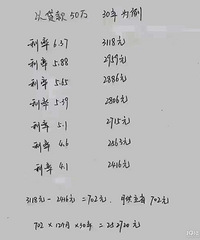 以贷款50万 30年为例
利率 6.37 3118元
利率 5.88 2959元
利率 5.65 2886元
利率 5.39 2806元
利率 5.1 2715元
利率 4.6 2563元
利率 4.1 2416元
3118元 - 2416元 = 702元. 月供立省 702元
702 × 12个月 × 30年 = 252720元